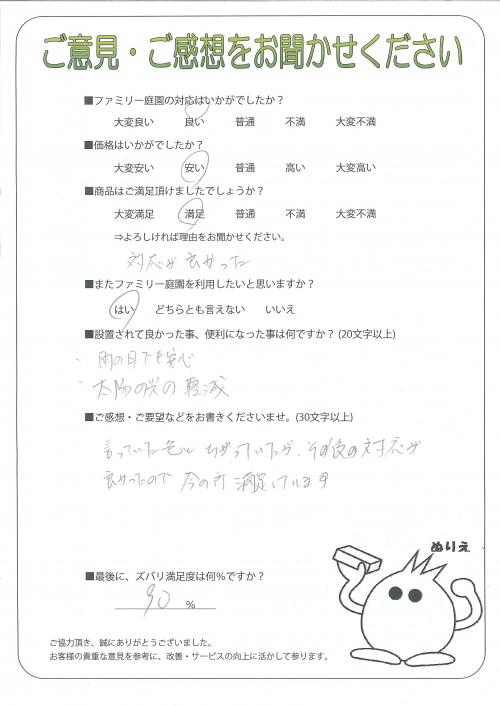 ご意見・ご感想をお聞かせください
■ファミリー庭園の対応はいかがでしたか？
大変良い 良い 普通 不満 大変不満
■価格はいかがでしたか？
大変安い 安い 普通 高い 大変高い
■商品はご満足頂けましたでしょうか？
大変満足 満足 普通 不満 大変不満
⇒よろしければ理由をお聞かせください。
対応が良かった
■またファミリー庭園を利用したいと思いますか？
はい どちらとも言えない いいえ
■設置されて良かった事、便利になった事は何ですか？(20文字以上)
・雨の日でも安心
・太陽の光の軽減
■ご感想・ご要望などをお書きくださいませ。(30文字以上)
言っていた色とちがっていたが、その後の対応が
良かったので 今の所 満足しています
ぬりえ
■最後に、ズバリ満足度は何％ですか？
90 ％
ご協力頂き、誠にありがとうございました。
お客様の貴重な意見を参考に、改善・サービスの向上に活かして参ります。